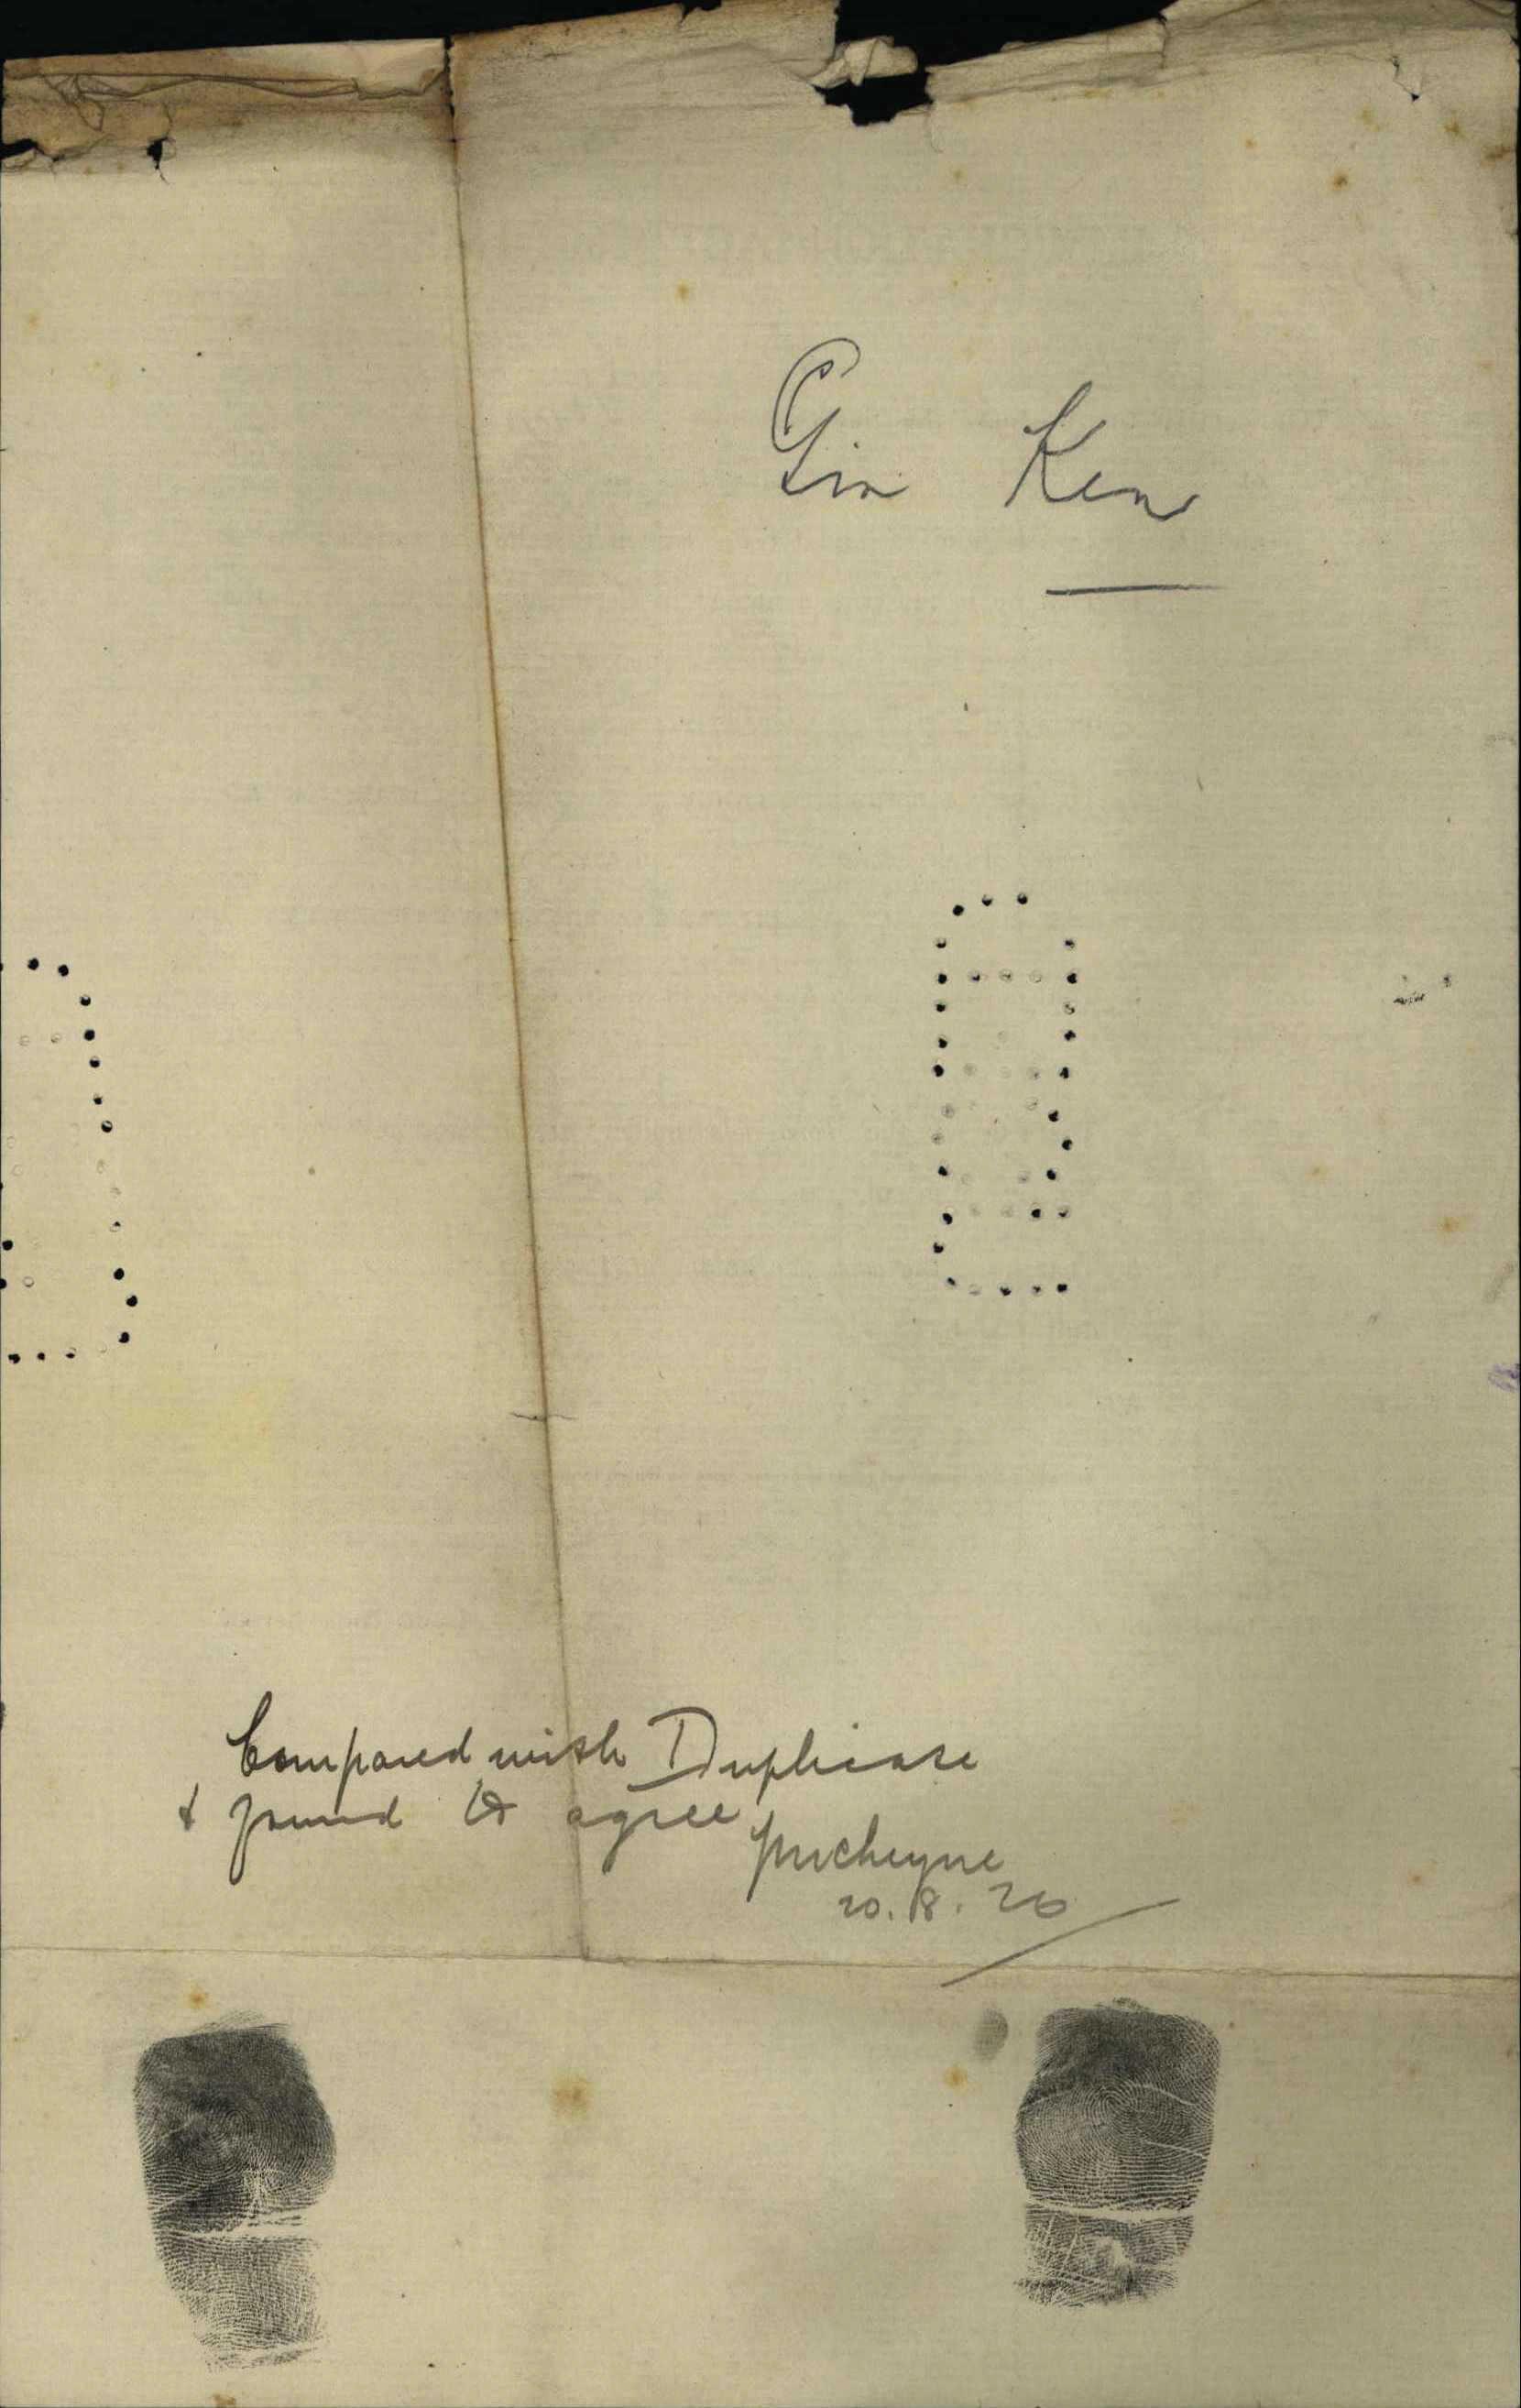 Gin Ken
Compared with Duplicate
& found to agree
20.8.26